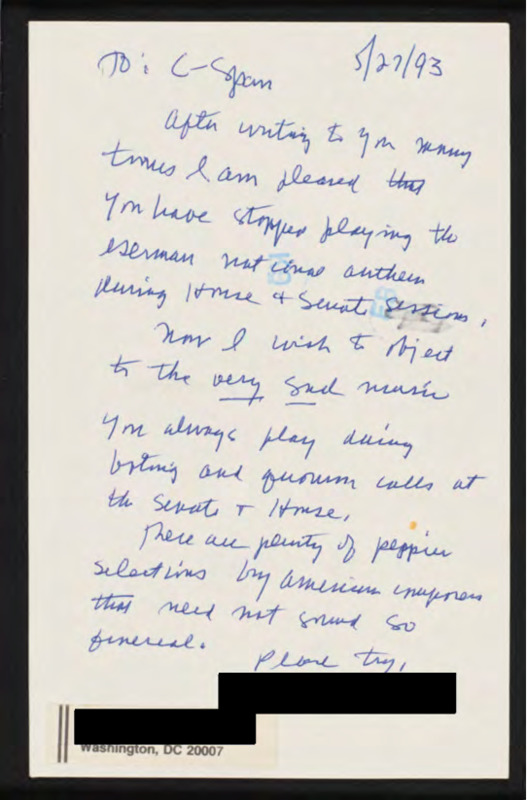 To: C-Span
5/27/93
After writing to you many
times I am pleased that
you have stopped playing the
German national anthem
during House & Senate Sessions.
Now I wish to object
to the very sad music
you always play during
voting and quorum calls at
the Senate & House.
There are plenty of peppier
selections by American composers
that need not sound so
funereal.
Please try,
Washington, DC 20007